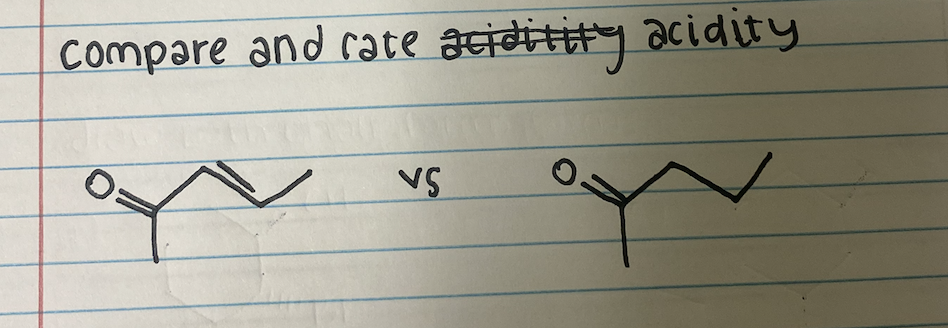 compare and rate aciditity acidity
O vs O